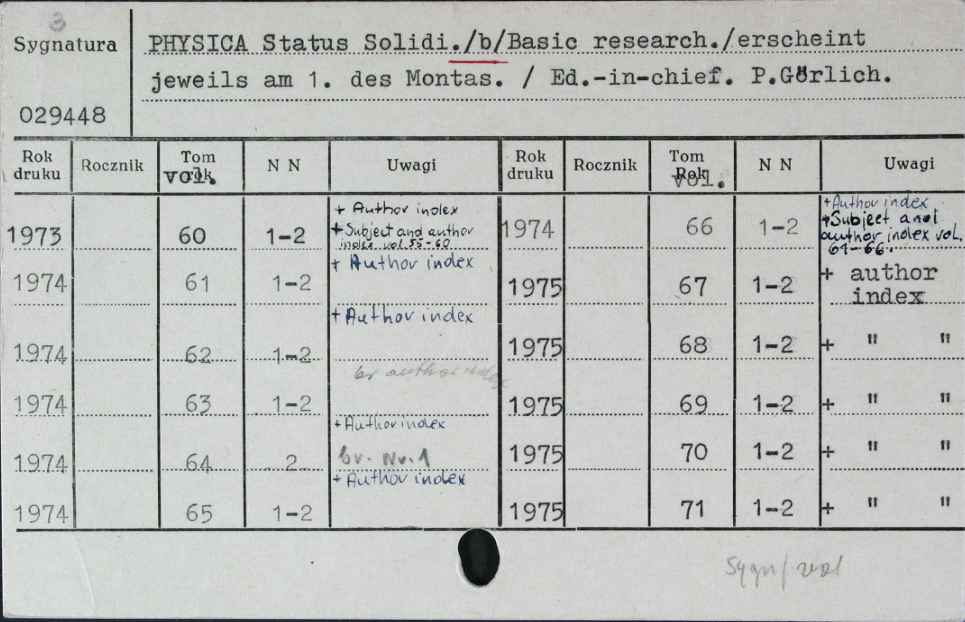 3
Sygnatura
PHYSICA Status Solidi./b/Basic research./erscheint
jeweils am 1. des Montas. / Ed.-in-chief. P.Görlich.
029448
Rok druku Rocznik Tom vol. N N Uwagi Rok druku Rocznik Tom Rok vol. N N Uwagi
1973 60 1-2 + Author index
+ Subject and author
index vol. 55-60
1974 66 1-2 + Author index
+ Subject and
author index vol.
61-66.
1974 61 1-2 + Author index
1975 67 1-2 + author
index
1974 62 1-2 + Author index
1975 68 1-2 + " "
1974 63 1-2 br author index
1975 69 1-2 + " "
1974 64 2 + Author index
br. Nr. 1
1975 70 1-2 + " "
1974 65 1-2 + Author index
1975 71 1-2 + " "
Sygn/vol